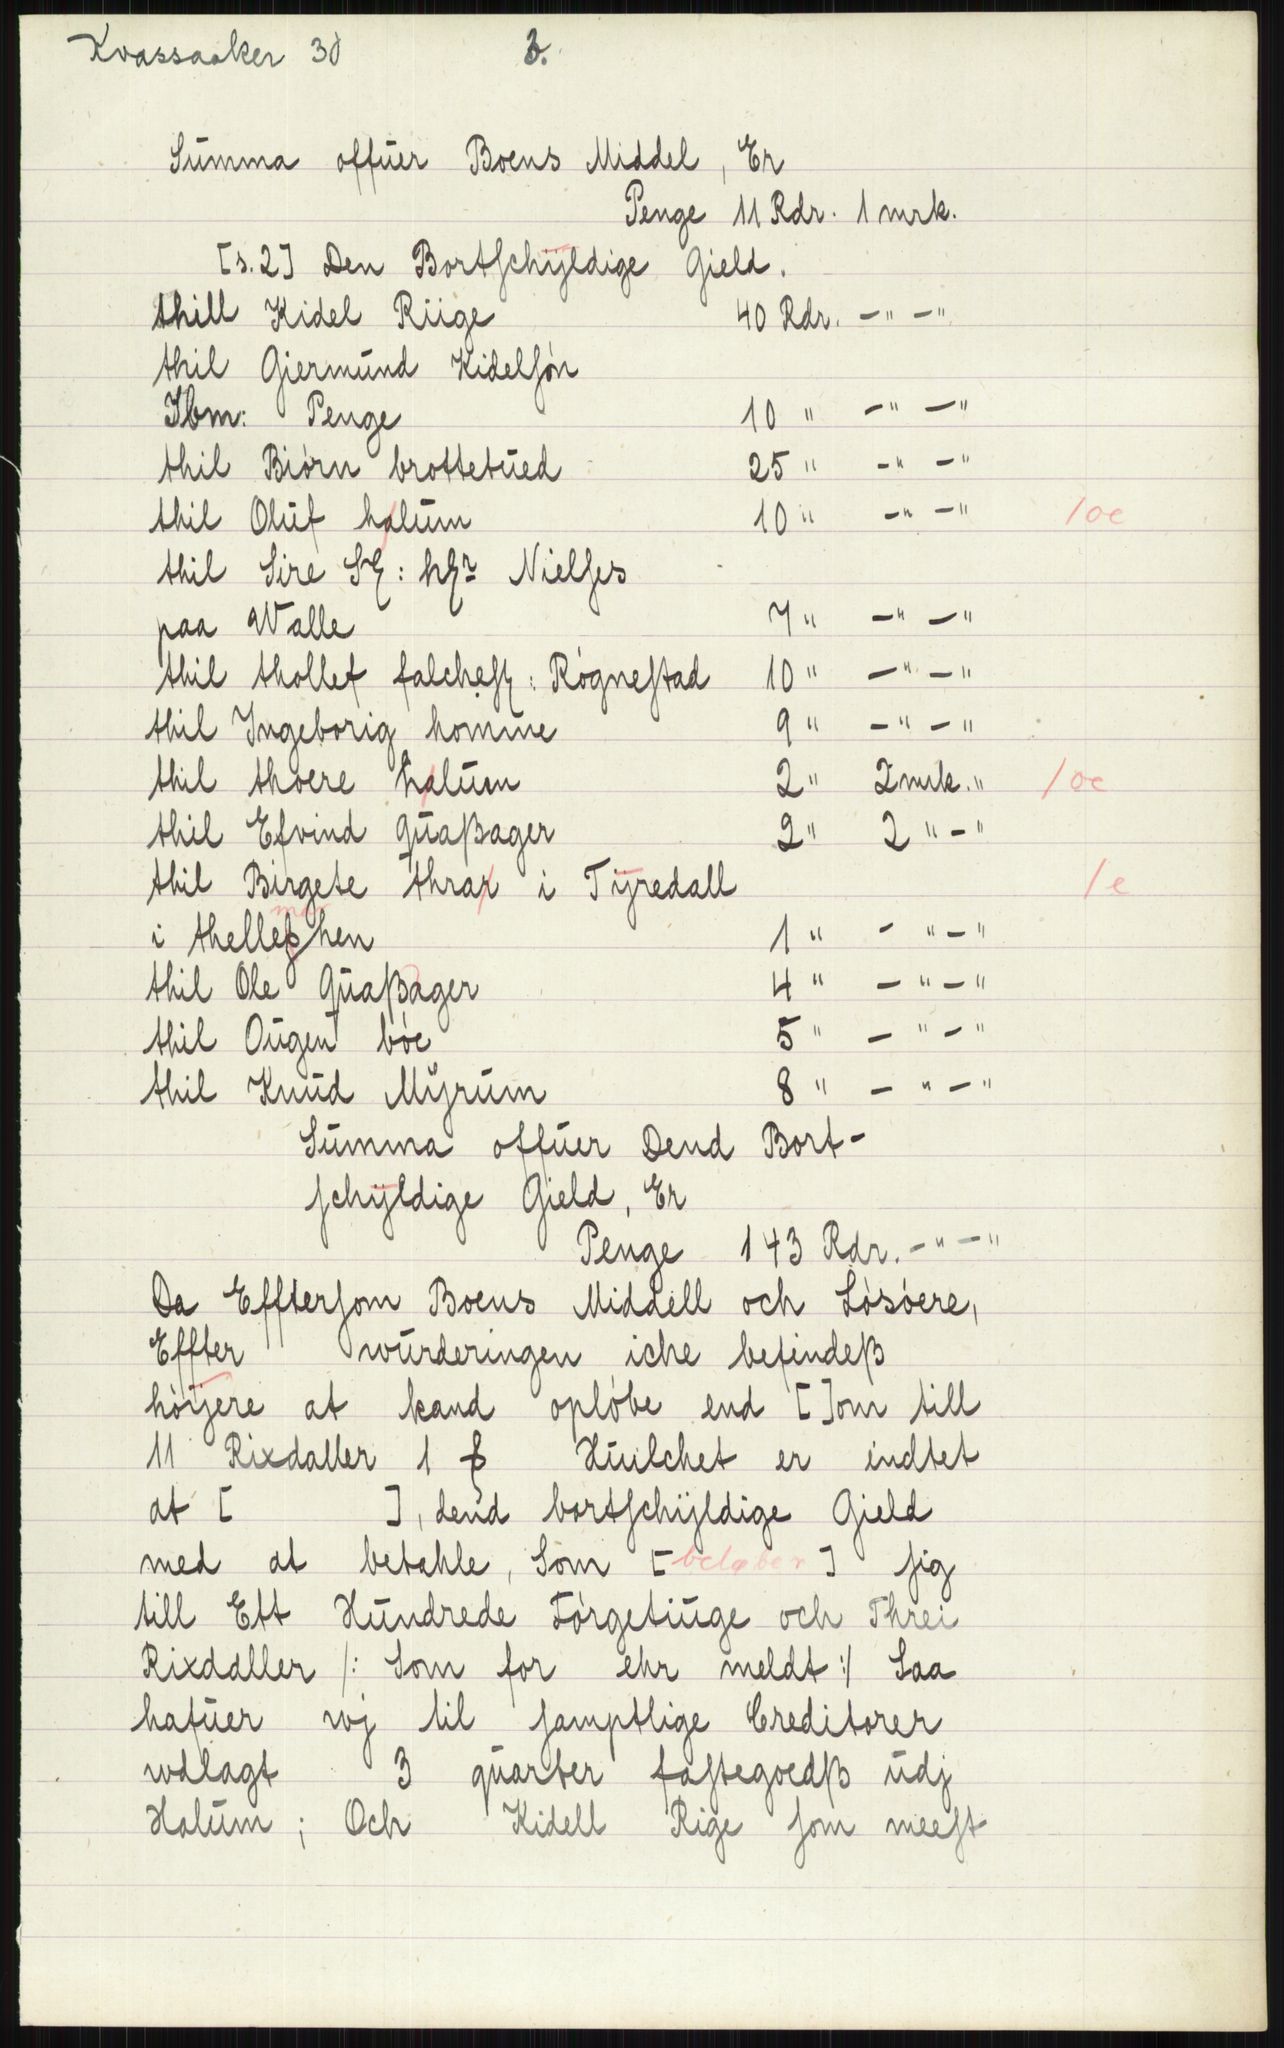 Kvassaaker 30 3.
Summa offuer Boens Middel, Er
Penge 11 Rdr. 1 mrk.
[s. 2] Den Bortschÿldige Gield.
thill Kidel Riige 40 Rdr. -"-"
thil Giermund Kidelsøn
Ibm: Penge 10 " -"-"
thil Biørn brottetued 25 " -"-"
thil Oluf halum 10 " -"-" /oe
thil Sire Nielses
paa Walle 7 " -"-"
thil thollef Røgnestad 10 " -"-"
thil Ingeborig homme 9 " -"-"
thil thoere halum 2 " 2 mrk. " /oe
thil Efvind Quaßager 2 " 2 "-"
thil Birgete thrar i Tÿredall /e
i 1 " -"-"
thil Ole Quaßager 4 " -"-"
thil Ougen bøe 5 " -"-"
thil Knud Mÿrum 8 " -"-"
Summa offuer Dend Bort-
schÿldige Gield, Er
Penge 143 Rdr. -"-"
Da Efftersom Boens Middell och Løsøere,
Effter wurderingen iche befindeß
høÿere at kand opløbe end [ ]om till
11 Rixdaller 1 Huilchet er indtet
at [ ], dend bortschÿldige Gield
med at betahle, Som [beløber] sig
till Ett Hundrede Førgetiuge och Threi
Rixdaller /: Som for ehr meldt :/ Saa
hafuer wj til samptlige Creditorer
wdlagt 3 quarter fastegoedß udj
Halum; Och Kidell Rige som meest